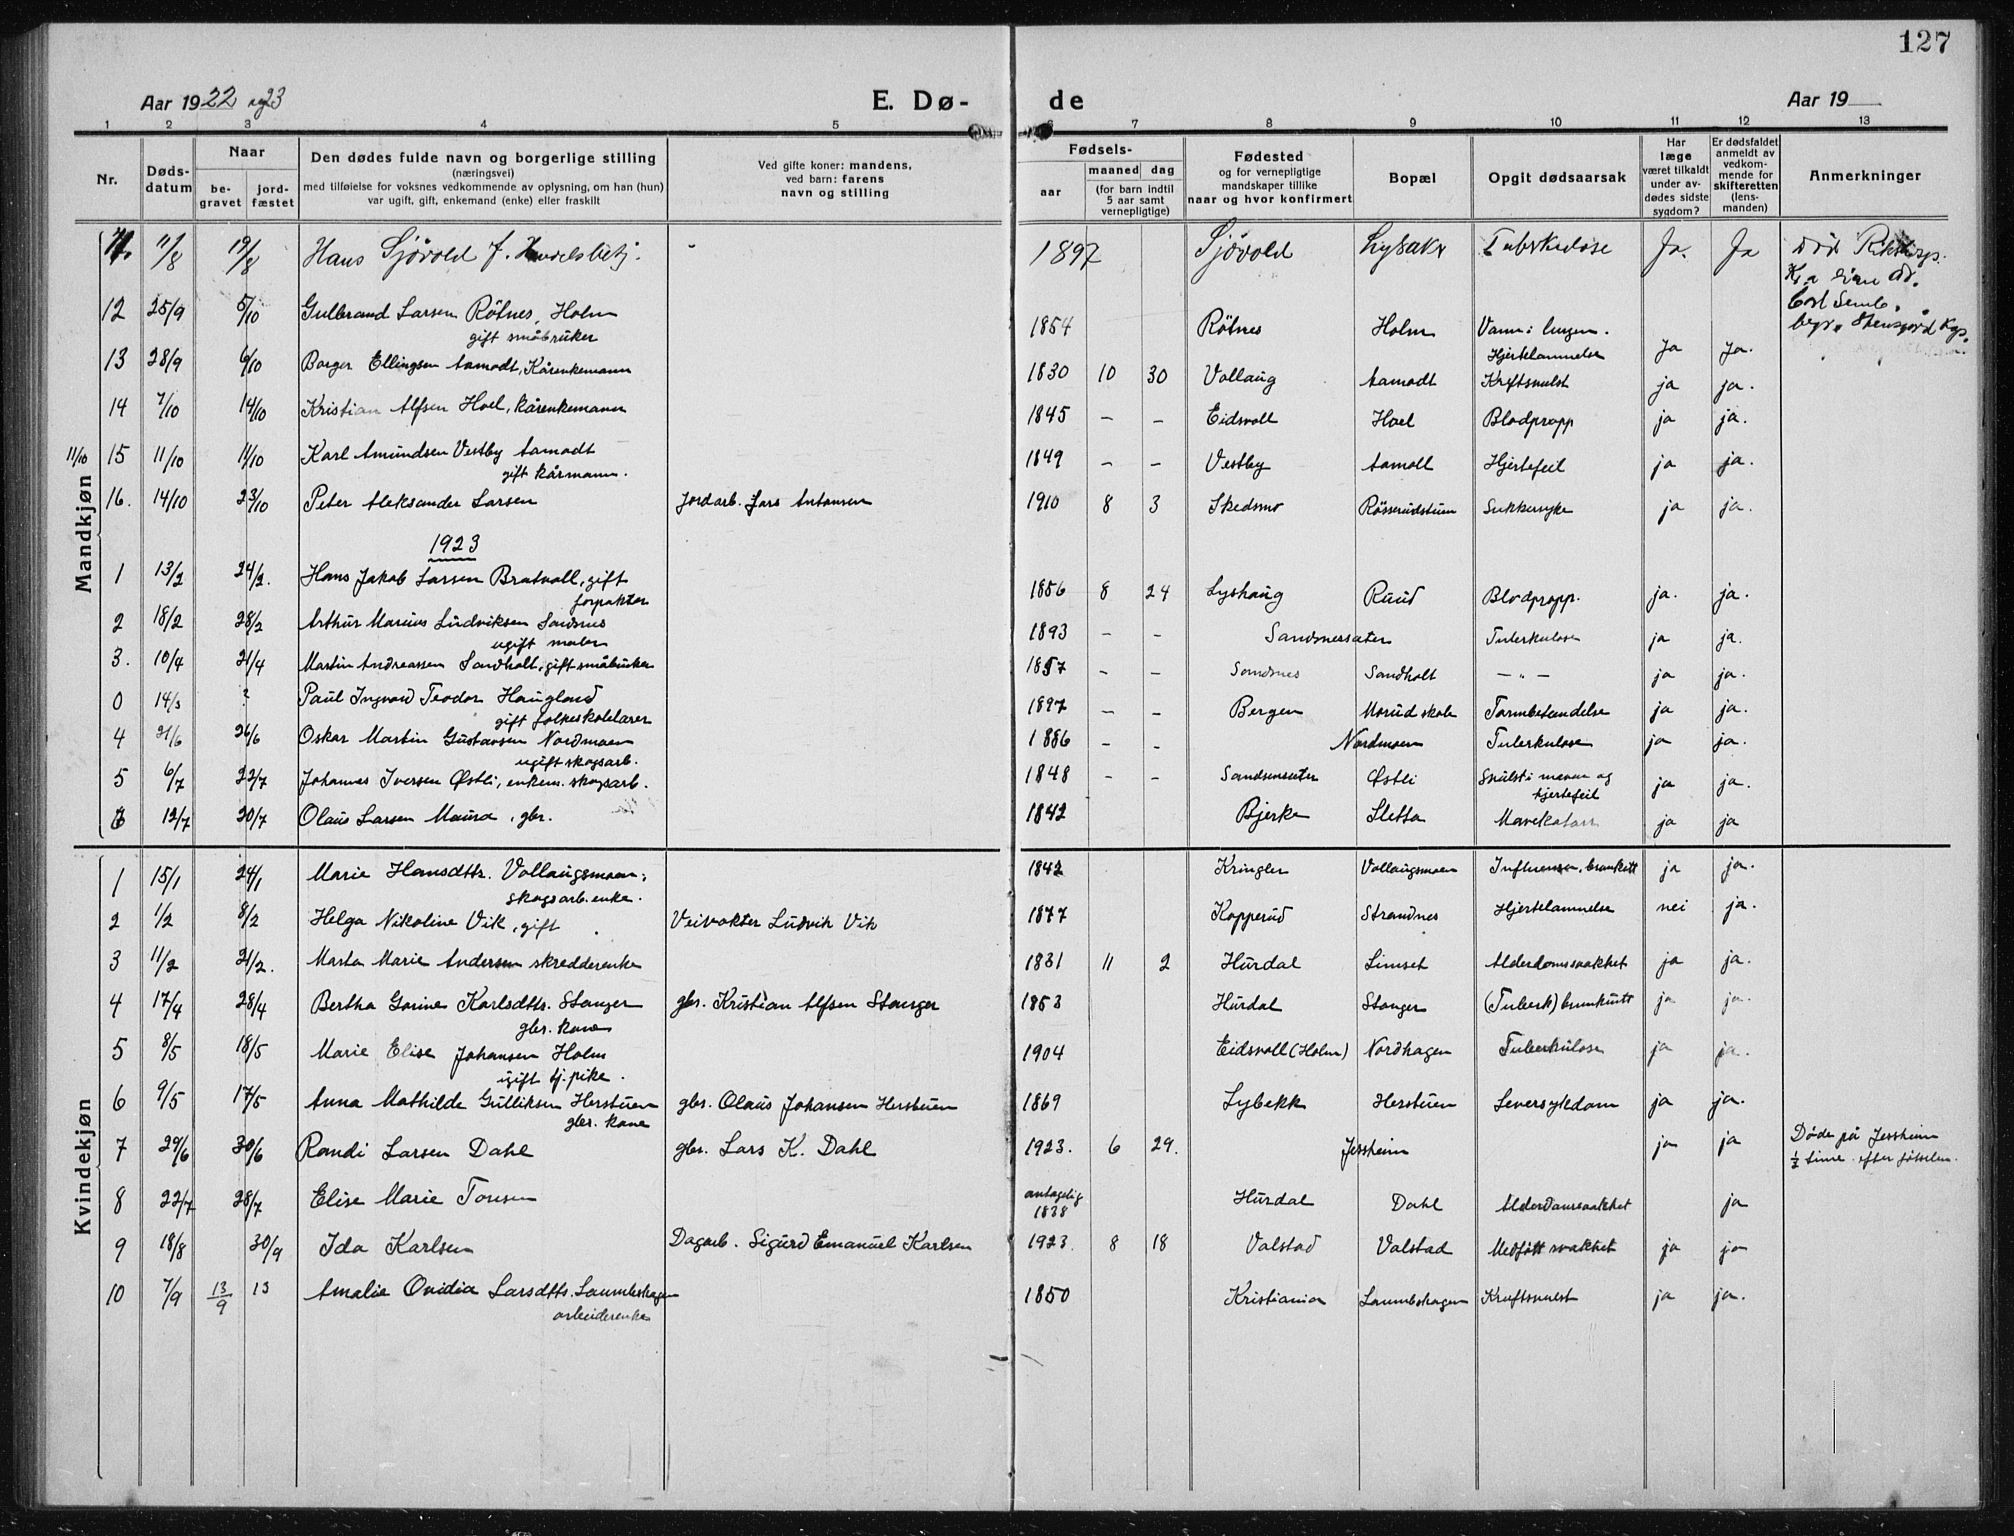 127
Aar 1922 og 23
E. Dø-
de
Aar 19
1 2 3 4 5 6 7 8 9 10 11 12 13
Nr.
Døds-
datum
Naar
be-
gravet
jord-
fæstet
Den dødes fulde navn og borgerlige stilling
(næringsvei)
med tilføielse for voksnes vedkommende av oplysning, om han (hun)
var ugift, gift, enkemand (enke) eller fraskilt
Ved gifte koner: mandens,
ved barn: farens
navn og stilling
Fødsels-
aar
maaned dag
(for barn indtil
5 aar samt
vernepligtige)
Fødested
og for vernepligtige
mandskaper tillike
naar og hvor konfirmert
Bopæl
Opgit dødsaarsak
Har
læge
været tilkaldt
under av-
dødes sidste
sygdom?
Er dødsfaldet
anmeldt av
vedkom-
mende for
skifteretten
(lens-
manden)
Anmerkninger
Mandkjøn
11/8 19/8 Hans Sjøvold f. Handelsbetj. 1897 Sjøvold Lysaker Tuberkulose Ja. Ja død Rikshosp.
12 25/9 5/10 Gulbrand Larsen Røtnes, Holm
gift småbruker
1854 Røtnes Holm Vann i lungen.
Hjertelammelse Ja Ja.
begr. Stensgård Kgs.
13 28/9 6/10 Borger Ellingsen Aamodt, Kårenkemann 1830 10 30 Vollaug Aamodt Kræftsvulst ja ja.
14 7/10 14/10 Kristian Alfsen Hoel, kårenkemann 1845 – – Eidsvoll Hoel Blodpropp ja ja.
11/10 15 11/10 11/10 Karl Amundsen Vestby Aamodt
gift kårmann.
1849 – – Vestby Aamott Hjertefeil ja ja.
16. 14/10 23/10 Peter Aleksander Larsen Jordarb. Lars Antonsen 1910 8 3 Skedsmo Røsserudstuen Sukkersyke ja ja.
1923
1 13/2 24/2. Hans Jakob Larsen Bratvoll, gift
forpakter
1856 8 24 Lyshaug Ruud Blodpropp. ja. ja.
2 18/2 28/2 Arthur Marius Ludviksen Sandsnes
ugift maler
1893 – – Sandsnessæter Tuberkulose ja ja.
3. 10/4 21/4 Martin Andreassen Sandholt, gift småbruker 1857 – – Sandsnes Sandholt – " – ja ja.
0 14/5 ? Paul Ingvard Teodor Haugland
gift folkeskolelærer
1897 – – Bergen Morud skole Tarmbetændelse ja ja.
4 21/6 26/6 Oskar Martin Gustavsen Nordmoen
ugift skogsarb.
1886 – – Nordmoen Tuberkulose ja ja.
5 6/7 22/7 Johannes Iversen Østli, enkem. skogsarb. 1848 – – Sandsnessæter Østli Svulst i maven og
hjertefeil ja ja.
6 12/7 20/7 Olaus Larsen Maura, gbr. 1842 Bjerke Sletta Mavekatarr ja ja
Kvindekjøn
1 15/1 24/1 Marie Hansdttr. Vollaugsmoen,
skogsarb.enke.
1842 Kringler Vollaugsmoen Influensa, bronkitt ja ja.
2 1/2 8/2 Helga Nikoline Vik, gift Veivokter Ludvik Vik 1877 Kopperud Strandnes Hjertelammelse nei ja.
3 11/2 21/2. Marta Marie Andersen skredderenke 1831 11 2 Hurdal Limset Alderdomssvakhet ja ja.
4 17/4 28/4 Bertha Gorine Karlsdttr. Stanger
gbr. kone
gbr. Kristian Alfsen Stanger 1853 Hurdal Stanger (Tuberk) bronkitt ja ja.
5 8/5 18/5 Marie Elise Johansen Holm
ugift tj. pike.
1904 Eidsvoll (Holm) Nordhagen Tuberkulose ja ja.
6 9/5 17/5 Anna Mathilde Gulliksen Herstuen
gbr. kone
gbr. Olaus Johansen Herstuen 1869 Lybekk Herstuen Leversykdom ja ja.
7 29/6 30/6 Randi Larsen Dahl gbr. Lars K. Dahl 1923. 6 29. Jessheim ja ja Døde på Jessheim
½ time efter fødselen.
8 22/7 28/7 Elise Marie Toresen antagelig
1838 Hurdal Dahl Alderdomssvakhet ja
9 18/8 30/9 Ida Karlsen Dagarb. Sigurd Emanuel Karlsen 1923. 8 18 Valstad Valstad Medfødt svakhet ja ja
10 7/9 13/9 13 Amalie Ovidia Larsdttr. Laumbshagen
arbeiderenke
1850 Kristiania Laumbshagen Kræftsvulst ja ja.